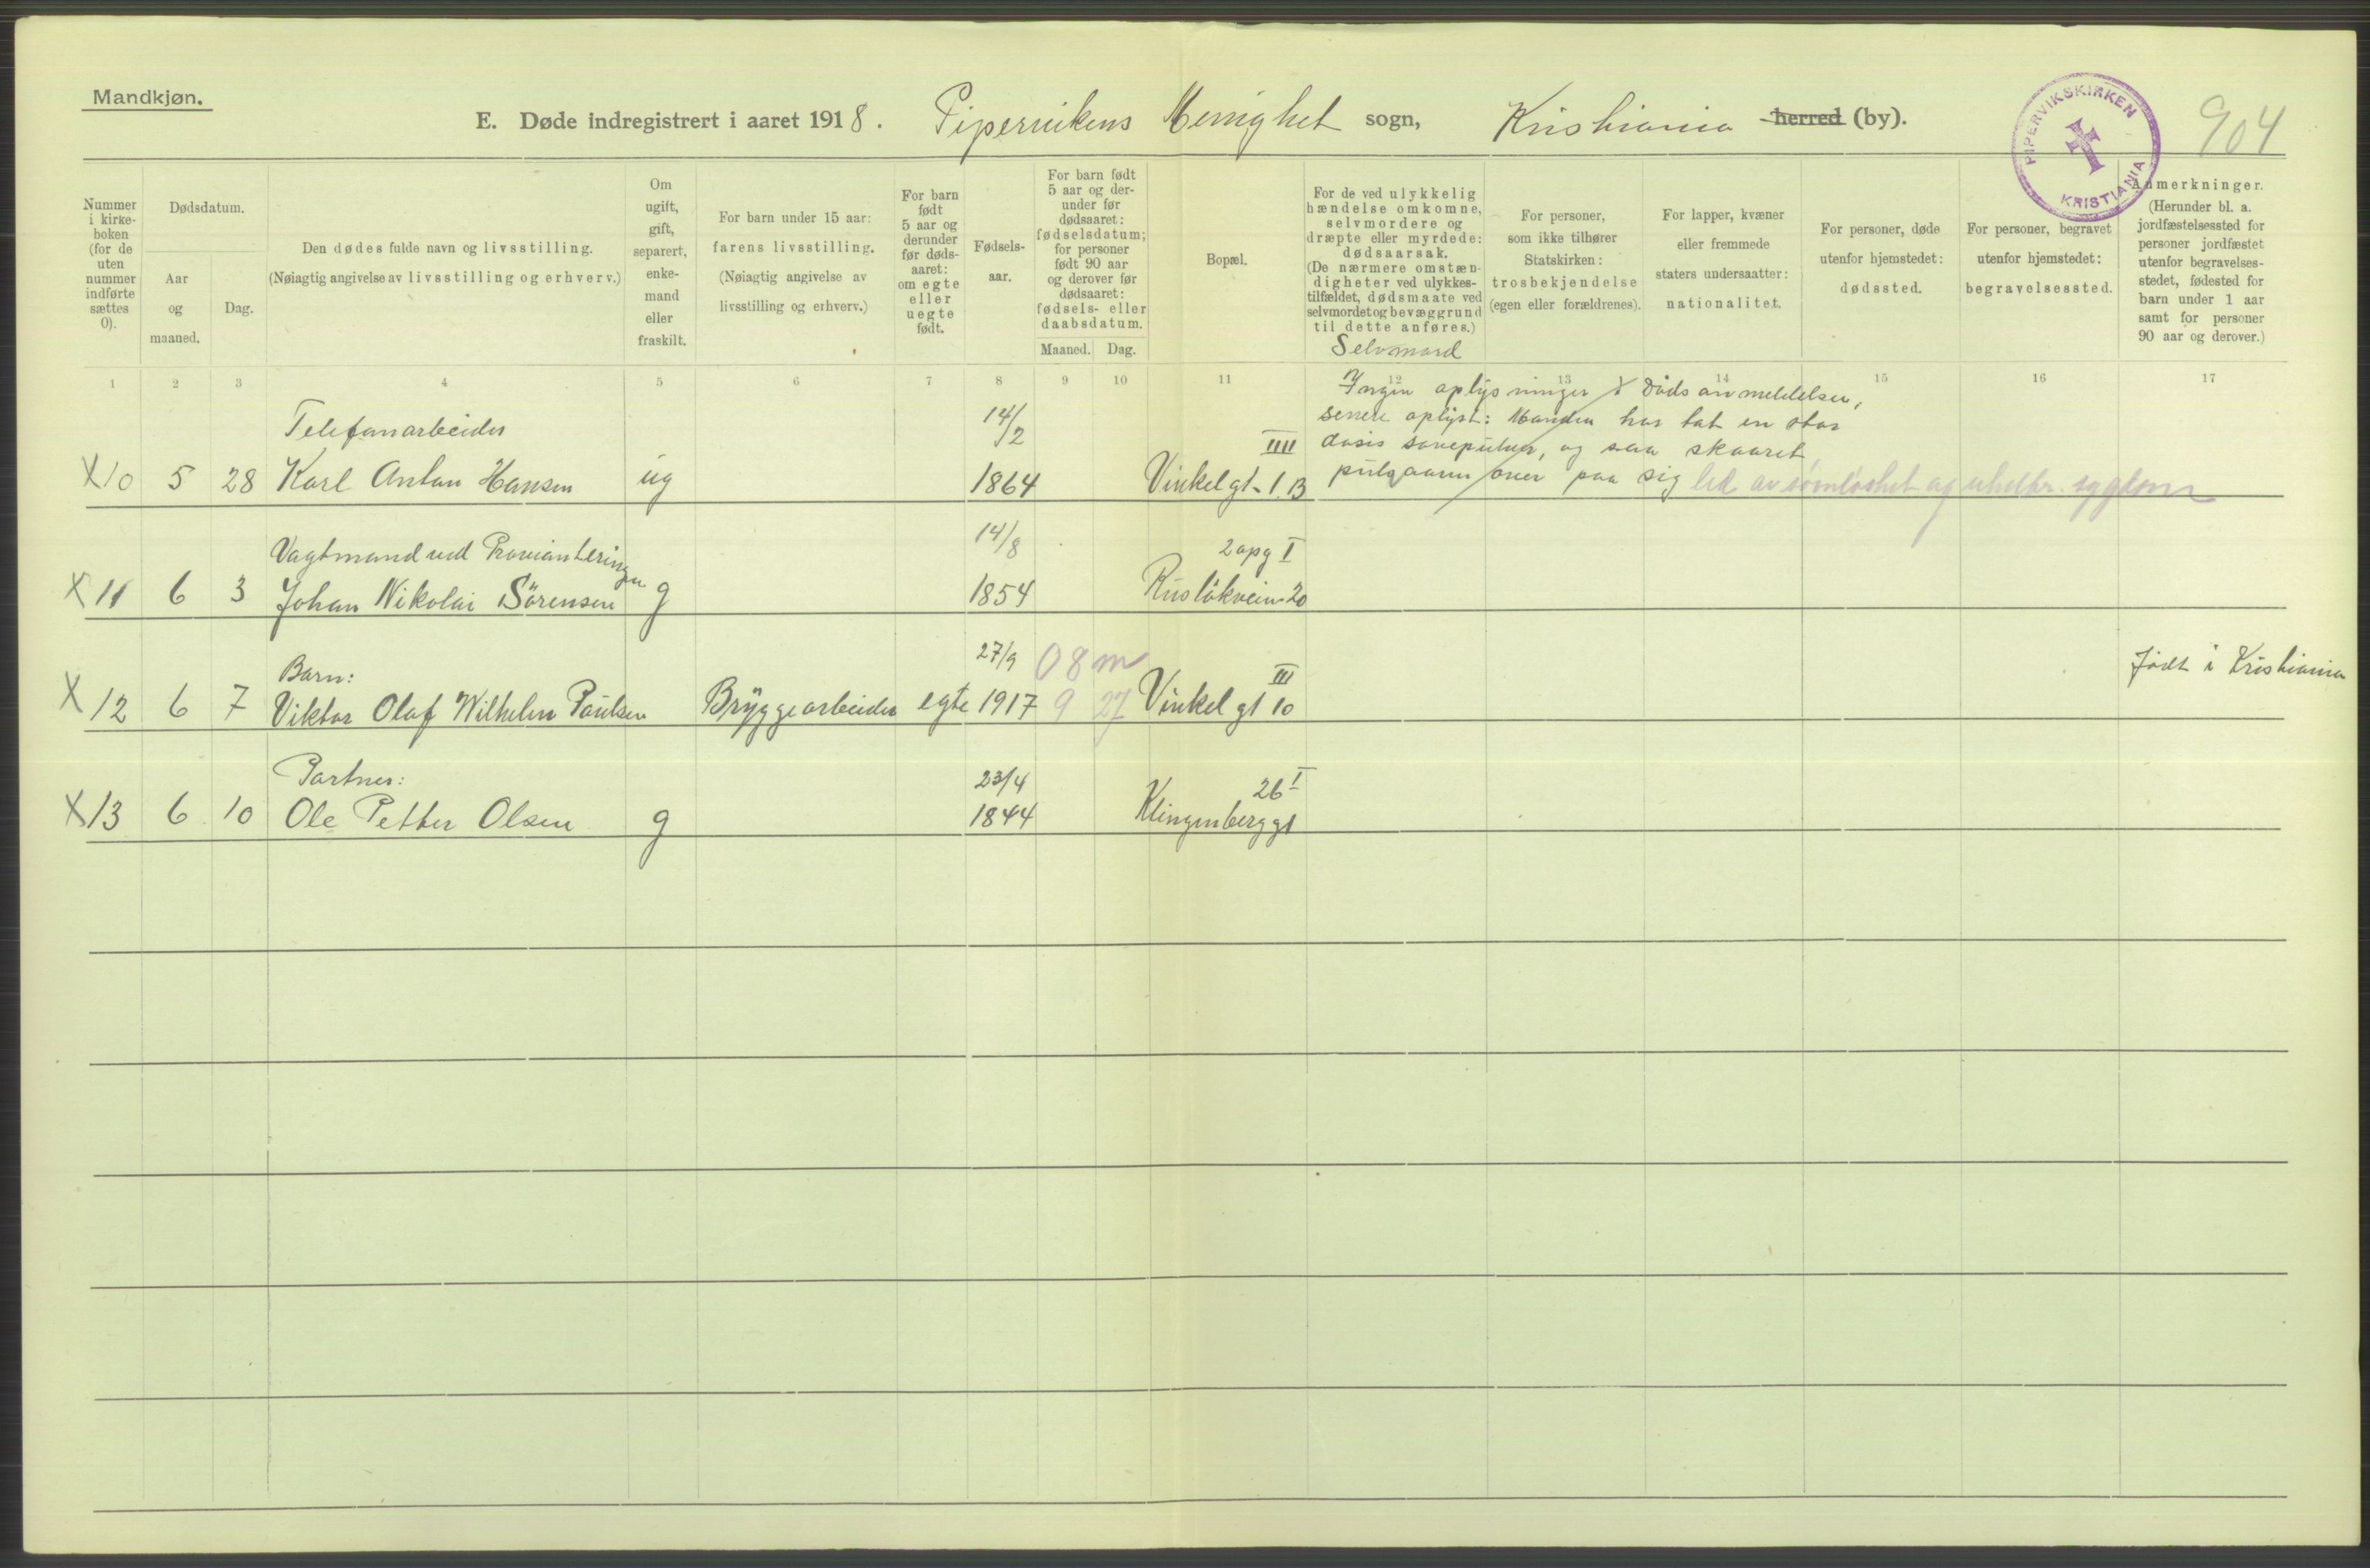 Mandkjøn.
E. Døde indregistrert i aaret 1918. Pipervikens Menighet sogn, Kristiania herred (by).
PIPERVIKSKIRKEN KRISTIANIA
904
Nummer i kirke- boken (for de uten nummer indførte sættes 0).
Dødsdatum.
Aar og maaned.
Dag.
Den dødes fulde navn og livsstilling.
(Nøiagtig angivelse av livsstilling og erhverv.)
Om ugift, gift, separert, enke- mand eller fraskilt.
For barn under 15 aar:
farens livsstilling.
(Nøiagtig angivelse av
livsstilling og erhverv.)
For barn født 5 aar og derunder før døds- aaret: om egte eller uegte født.
Fødsels- aar.
For barn født 5 aar og der- under før dødsaaret: fødselsdatum; for personer født 90 aar og derover før dødsaaret: fødsels- eller daabsdatum.
Maaned. Dag.
Bopæl.
For de ved ulykkelig hændelse omkomne, selvmordere og dræpte eller myrdede: dødsaarsak. (De nærmere omstæn- digheter ved ulykkes- tilfældet, dødsmaate ved selvmordet og bevæggrund til dette anføres.)
For personer, som ikke tilhører Statskirken: trosbekjendelse (egen eller forældrenes).
For lapper, kvæner eller fremmede staters undersaatter: nationalitet.
For personer, døde utenfor hjemstedet: dødssted.
For personer, begravet utenfor hjemstedet: begravelsessted.
Anmerkninger.
(Herunder bl. a. jordfæstelsessted for personer jordfæstet utenfor begravelses- stedet, fødested for barn under 1 aar samt for personer 90 aar og derover.)
1 2 3 4 5 6 7 8 9 10 11 12 13 14 15 16 17
Selvmord
Ingen oplysninger Dødsanmeldelsen,
senere oplyst: Manden har tat en stor
dosis sovepulver, og saa skaaret
pulsaaren over paa sig led av søvnløshet og uhelbr. sygdom
Telefonarbeider 14/2 IIII
X10 5 28 Karl Anton Hansen ug 1864 Vinkelgt. 1 B
Vagtmand ved Provianteringen 14/8 2 opg I
X 11 6 3 Johan Nikolai Sörensen g 1854 Rusløkveien 20
Barn: 27/9 08 m III Født i Kristiania
X 12 6 7 Viktor Olaf Wilhelm Paulsen Bryggearbeider egte 1917 9 27 Vinkelgt 10
Partner: 23/4 26 I
X13 6 10 Ole Petter Olsen g 1844 Klingenberggt